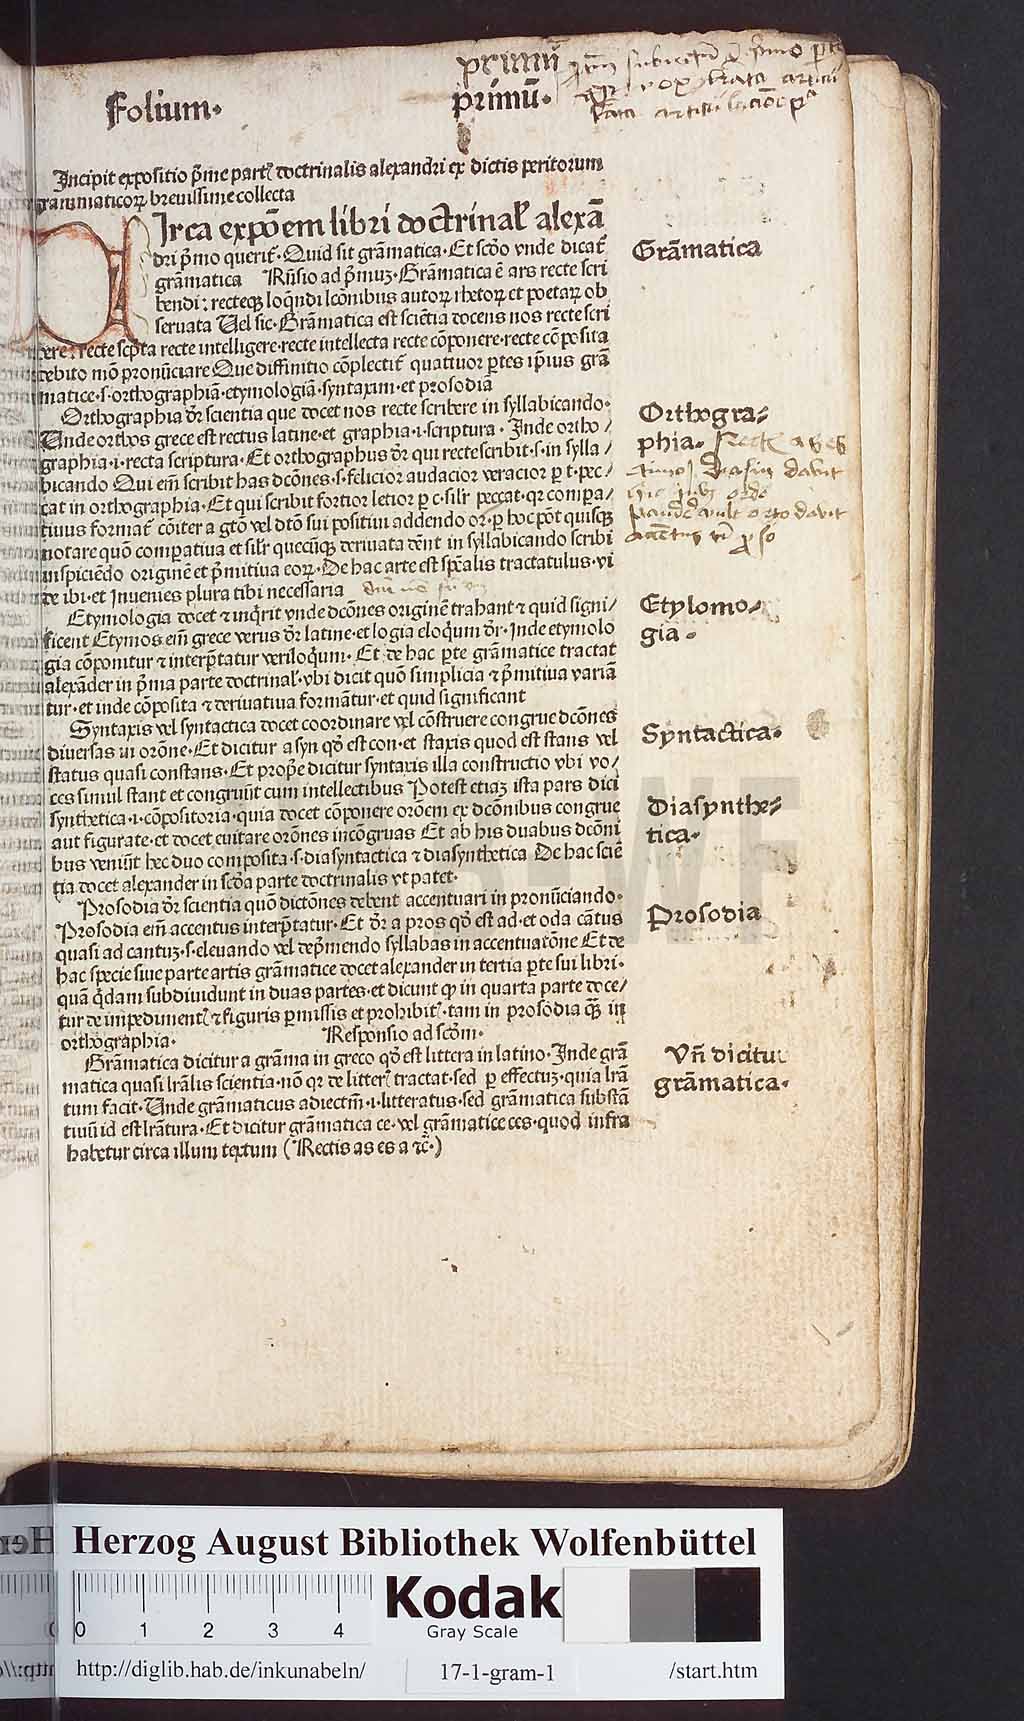 primū
Folium. primū.
Incipit expositio p̄me partꝭ doctrinalis alexandri ex dictis peritorum
grammaticoꝝ breuissime collecta
Irca expōem libri doctrinal' alexā
dri p̄mo querit̄. Quid sit grāmatica. Et scōo vnde dicat̄
grāmatica Rn̄sio ad p̄muꝫ. Grāmatica ē ars recte scri
bendi: recteqꝫ loq̄ndi lcōnibus autoꝝ rhetoꝝ et poetaꝝ ob
seruata Uel sic. Grāmatica est sciētia docens nos recte scri
bere: recte scpta recte intelligere. recte intellecta recte cōponere. recte cōposita
debito mō pronūciare Que diffinitio cōplectit̄ quattuor ꝑtes ip̄ius grā
matice. s. orthographiā. etymologiā. syntaxim. et prosodiā
Orthographia dr̄ scientia que docet nos recte scribere in syllabicando.
Unde orthos grece est rectus latine. et graphia. i. scriptura. Inde ortho/
graphia. i. recta scriptura. Et orthographus dr̄ qui recte scribit. s. in sylla/
bicando Qui em̄ scribit has dcōnes. s. felicior audacior veracior ꝑ t. pec/
cat in orthographia. Et qui scribit fortior letior ꝑ c. sil'r peccat. qr compa/
tiuus format̄ cōiter a gtō vel dtō sui positiui addendo or. ꝑ hoc pōt quisqꝫ
notare quō comparatiua et sil'r quecūqꝫ deriuata dēnt in syllabicando scribi
inspiciēdo originē et p̄mitiua eoꝝ. De hac arte est sp̄alis tractatulus. vi
de ibi. et inuenies plura tibi necessaria
Etymologia docet ⁊ inq̄rit vnde dcōnes originē trahant ⁊ quid signi/
ficent Etymos em̄ grece verus dr̄ latine. et logia eloq̄um dr̄. Inde etymolo
gia cōponitur ⁊ interp̄tatur veriloq̄um. Et de hac ꝑte grāmatice tractat
alexāder in p̄ma parte doctrinal'. vbi dicit quō simplicia ⁊ p̄mitiua variā
tur. et inde cōposita ⁊ deriuatiua formātur. et quid significant
Syntaxis vel syntactica docet coordinare vel cōstruere congrue dcōnes
diuersas in orōne. Et dicitur a syn qd̄ est con. et staxis quod est stans vel
status quasi constans. Et prop̄e dicitur syntaxis illa constructio vbi vo/
ces simul stant et congruūt cum intellectibus Potest etiaꝫ ista pars dici
synthetica. i. cōpositoria. quia docet cōponere orōem ex dcōnibus congrue
aut figurate. et docet euitare orōnes incōgruas Et ab his duabus dcōni
bus veniūt hec duo composita. s. diasyntactica ⁊ diasynthetica De hac sciē
tia docet alexander in scōa parte doctrinalis vt patet.
Prosodia dr̄ scientia quō dictōnes debent accentuari in pronūciando.
Prosodia em̄ accentus interp̄tatur. Et dr̄ a pros qd̄ est ad. et oda cātus
quasi ad cantuꝫ. s. eleuando vel dep̄mendo syllabas in accentuatōne Et de
hac specie siue parte artis grāmatice docet alexander in tertia ꝑte sui libri.
quā q̄dam subdiuidunt in duas partes. et dicunt ꝙ in quarta parte doce/
tur de impedimentꝭ ⁊ figuris ꝑmissis et prohibitꝭ. tam in prosodia qꝫ̄ in
orthographia. Responsio ad scōm.
Grāmatica dicitur a grāma in greco qd̄ est littera in latino. Inde grā
matica quasi lrālis scientia. nō qr de litterꝭ tractat. sed ꝑ effectuꝫ. quia lrā
tum facit. Unde grāmaticus adiectm̄. i. litteratus. sed grāmatica substā
tiuū id est lrātura. Et dicitur grāmatica ce. vel grāmatice ces. quod infra
habetur circa illum textum (Rectis as es a ⁊c̄.)
Grāmatica
Orthogra/
phia.
Etylomo/
gia.
Syntactica.
Diasynthe/
tica.
Prosodia
Vn̄ dicitur
grāmatica.
Herzog August Bibliothek Wolfenbüttel
Kodak
Gray Scale
0 1 2 3 4
http://diglib.hab.de/inkunabeln/ 17-1-gram-1 /start.htm